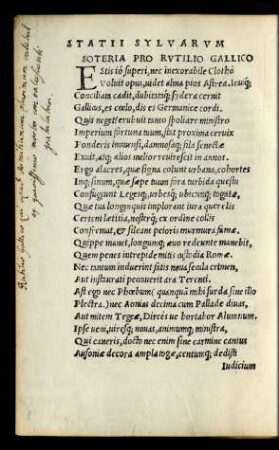 STATII SYLVARVM
SOTERIA PRO RVTILIO GALLICO
EStis iò superi, nec inexorabile Clotho
Voluit opus, uidet alma pios Astrea. Iouiq;
Conciliam cadit, dubitataq; sydera cernit
Gallicus, es cœlo, dis es Germanice cordi.
Quis neget? erubuit tanto spoliare ministro
Imperium fortuna tuum, stat proxima ceruix
Ponderis immensi, damnosaq; fila senectæ
Exuit, atq; alios melior reuirescit in annos.
Ergo alacres, quæ signa colunt urbana, cohortes
Inq; sinum, quæ sæpe tuum fora turbida questu
Confugiunt Legesq;, urbesq́; ubicunq; togatæ,
Quæ tua longinquis implorant iura querelis
Certent lætitia, nostrq́; ex ordine collis
Confremat, & sileant peioris murmura famæ.
Quippe manet, longumq́; æuo redeunte manebit,
Quem penes intrepide mitis custodia Romæ.
Nec tantum induerint fatis noua secula crimen,
Aut instaurati peccauerit ara Terenti.
Ast ego nec Phœbum ( quanquā mihi surda sine illo
Plectra. ) nec Aonias decima cum Pallade diuas,
Aut mitem Tegeæ, Dirces ue hortabor Alumnum.
Ipse ueni, uiresq́; nouas, animumq́; ministra,
Qui caneris, docto nec enim sine carmine cantus
Ausoniæ decora ampla togæ, centumq́; dedisti
Iudicium